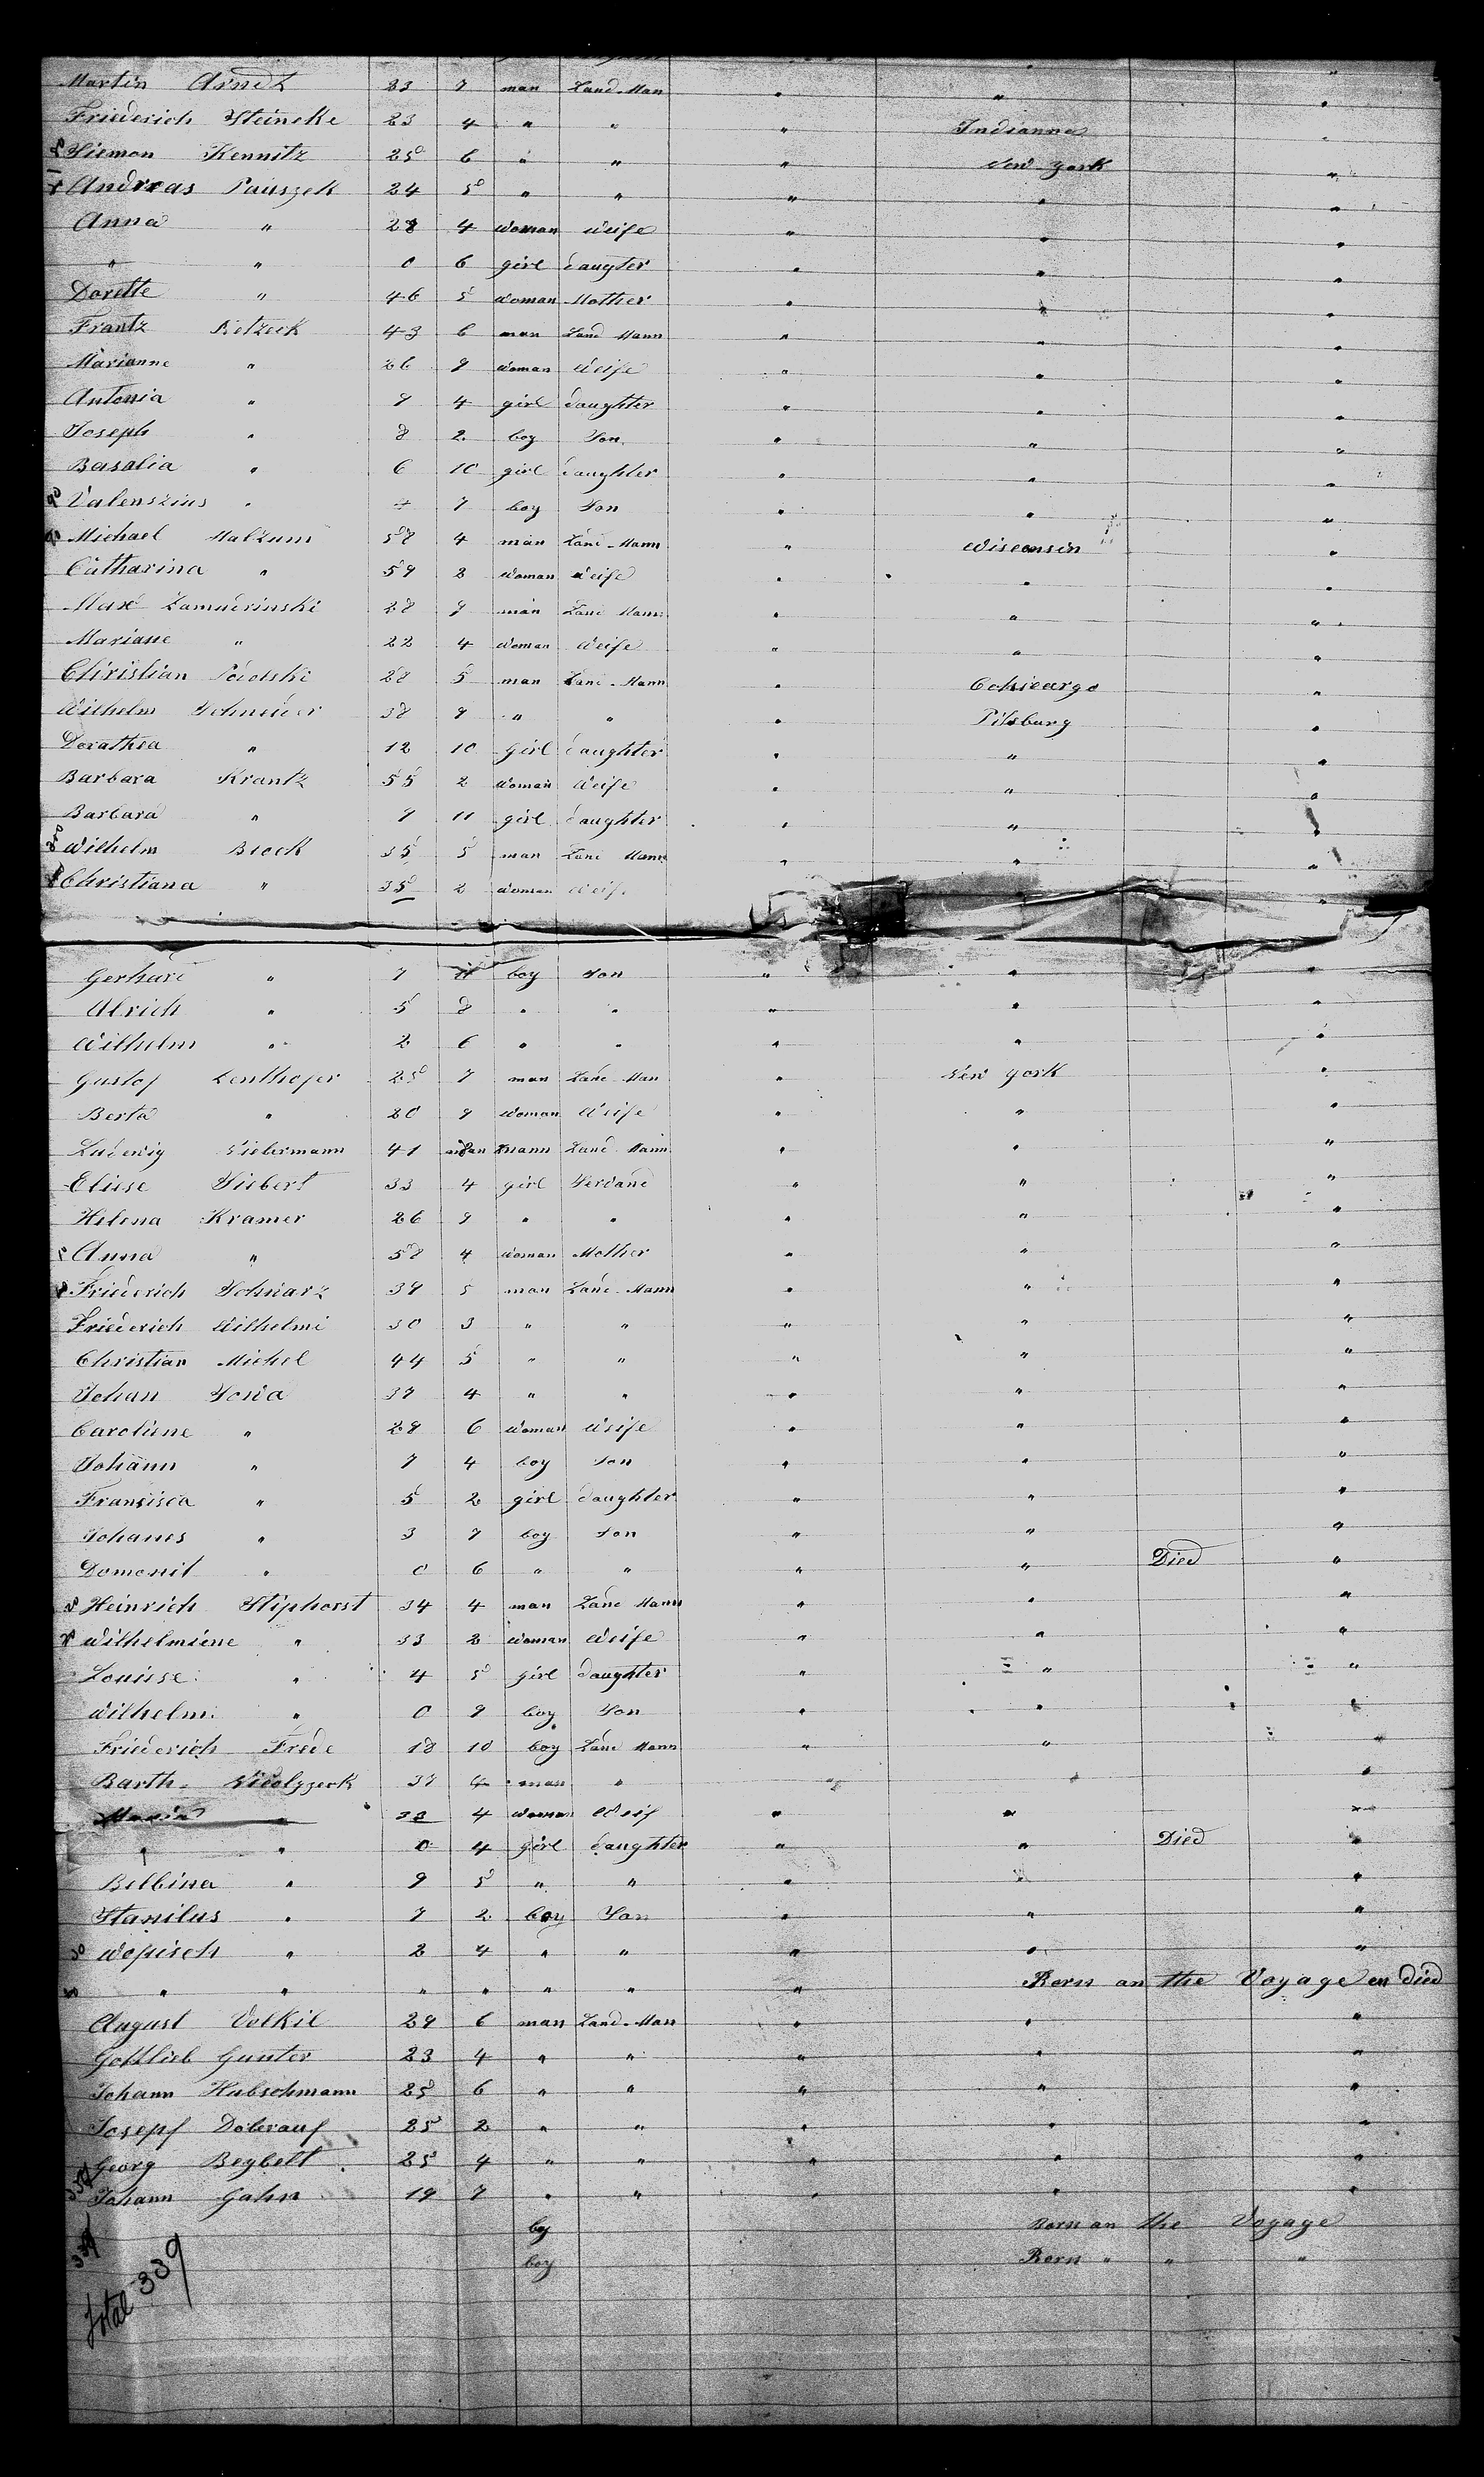 Martin Arndt 23 7 man Land-Man " " "
Friederich Steincke 23 4 " " " Indianna "
Siemon Kennitz 25 6 " " " New York "
Andreas Pauszek 24 5 " " " " "
Anna " 28 4 woman Weife " " "
" " 0 6 girl daugter " " "
Dorette " 46 5 woman Mother " " "
Frantz Retzeck 43 6 man Land Mann " " "
Marianne " 26 9 woman Weife " " "
Antonia " 9 4 girl daughter " " "
Joseph " 8 2 boy Son " " "
Basalia " 6 10 girl daughter " " "
Valenszius " 4 7 boy Son " " "
Michael Malzum 58 4 man Land-Mann " Wisconsin "
Catharina " 59 2 woman Weife " " "
Max Zamuerinski 28 9 man Land Mann " " "
Mariane " 22 4 woman Weife " " "
Christian 28 5 man Land-Mann " Cchicargo "
Wilhelm Schneider 38 9 " " " Pitsburg "
Dorathea " 12 10 girl daughter " " "
Barbara Krantz 55 2 woman Weife " " "
Barbara " 9 11 girl daughter " " "
Wilhelm Brock 35 5 man Land Mann " " "
Christiana " 35 2 woman Weife "
Gerhard " 7 boy Son " " "
Ulrich " 5 8 " " " " "
Wilhelm " 2 6 " " " " "
Gustof Lenthofer 25 7 man Land-Man " New York "
Berta " 20 9 woman Weife " " "
Ludewig Liebermann 41 mann Land-Mann " " "
Eliese Siebert 33 4 girl Servand " " "
Helena Kramer 26 9 " " " " "
Anna " 58 4 woman Mother " " "
Friederich Schwarz 39 5 man Land-Mann " " "
Friederich Wilhelmi 30 3 " " " " "
Christian Michel 44 5 " " " " "
Johan 37 4 " " " " "
Caroliene " 29 6 woman Weife " " "
Johann " 7 4 boy Son " " "
Francisca " 5 2 girl daughter " " "
Johanes " 3 7 boy Son " " "
Domenit " 0 6 " " " " Died "
Heinrich Stiphorst 34 4 man Land Mann " " "
Wilhelmiene " 33 2 woman Weife " " "
Louisse " 4 5 girl daughter " " "
Wilhelm " 0 9 boy Son " " "
Friederich Frede 18 10 boy Land Mann " " "
Barth. 37 4 man " " " "
Maria " 33 4 woman Weif " " "
" " 0 4 girl daughter " " Died "
Belbina " 9 5 " " " " "
Stanilus " 7 2 boy Son " " "
Wojisch " 2 4 " " " " "
" " " " " " " Born an the Voyage en died
August Volkil 29 6 man Land-Man " " "
Gottlieb Gunter 23 4 " " " " "
Johann Hubschmann 25 6 " " " " "
Josepf Doberauf 25 2 " " " " "
Georg Begbelt 25 4 " " " " "
Johann Gahn 19 7 " " " " "
boy Born an the Voyage
boy Born " " "
Total 339